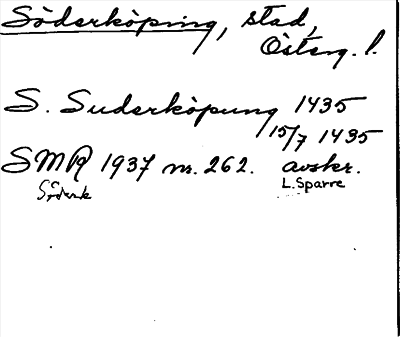 Söderköping, stad,
Österg. l.
S. Suderköpung 1435
15/7 1435
SMR 1937 nr. 262. avskr.
L. Sparre